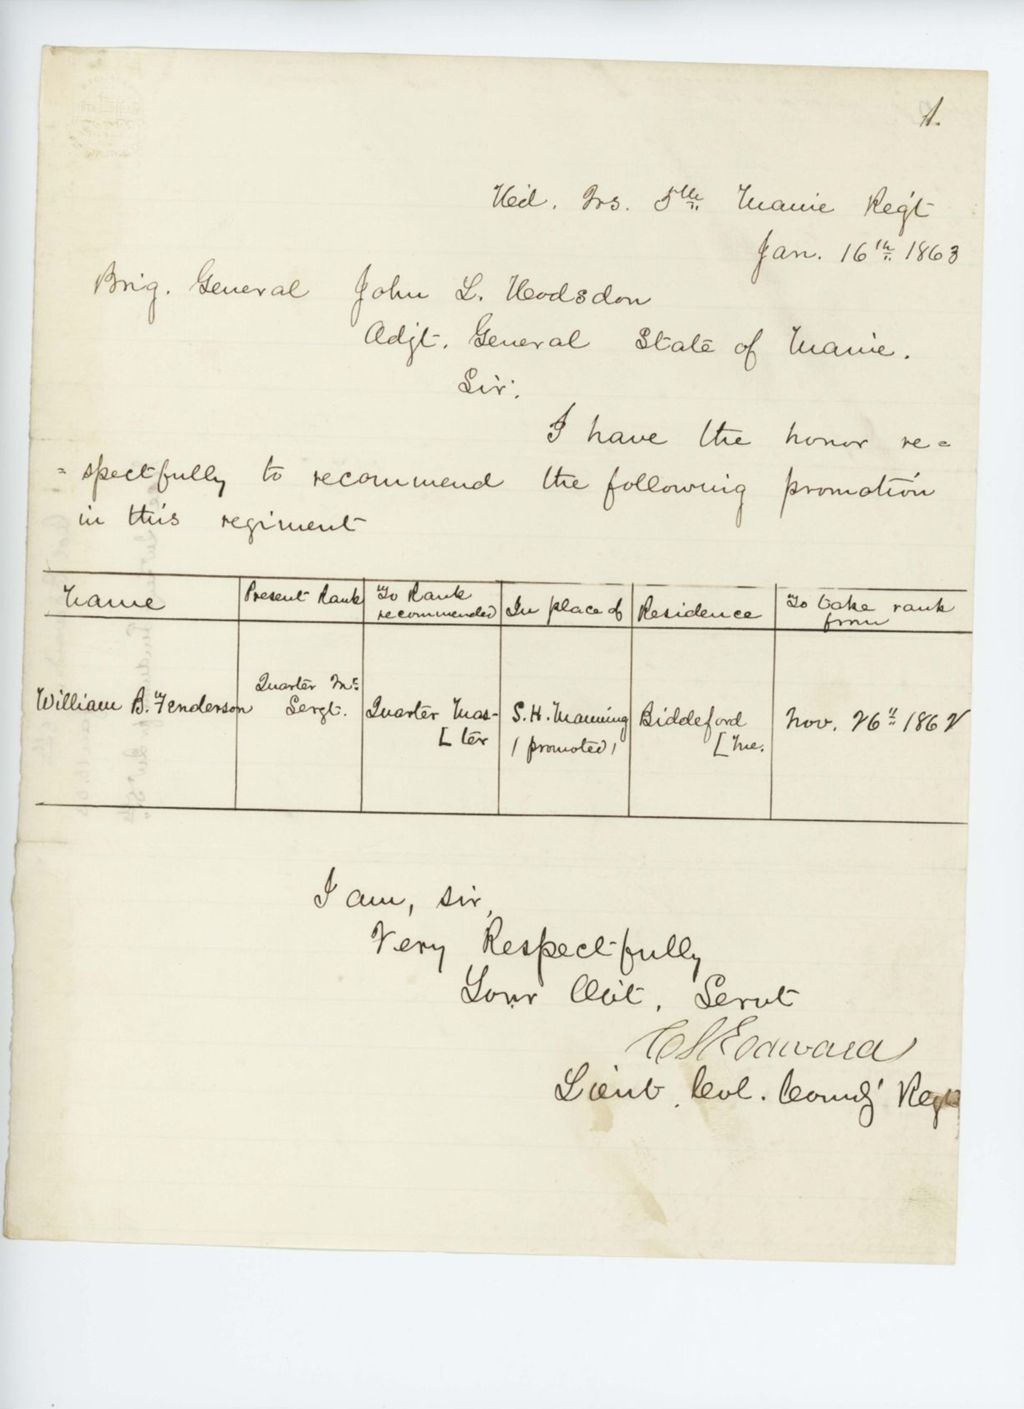 1.
Hed. Qrs. 5th Maine Reg't
Jan. 16th 1863
Brig. General John L. Hodsdon
Adjt. General State of Maine.
Sir:
I have the honor re=
=spectfully to recommend the following promotion
in this regiment
Name | Present Rank | To Rank recommended | In place of | Residence | To take rank from
William B. Fenderson | Quarter Mr Sergt. | Quarter Mas-[ter | S. H. Manning (promoted) | Biddeford [Me. | Nov. 26" 1862
I am, sir,
Very Respectfully
Your Obt. Servt
C S Edwards
Lieut. Col. Comdg' Regt